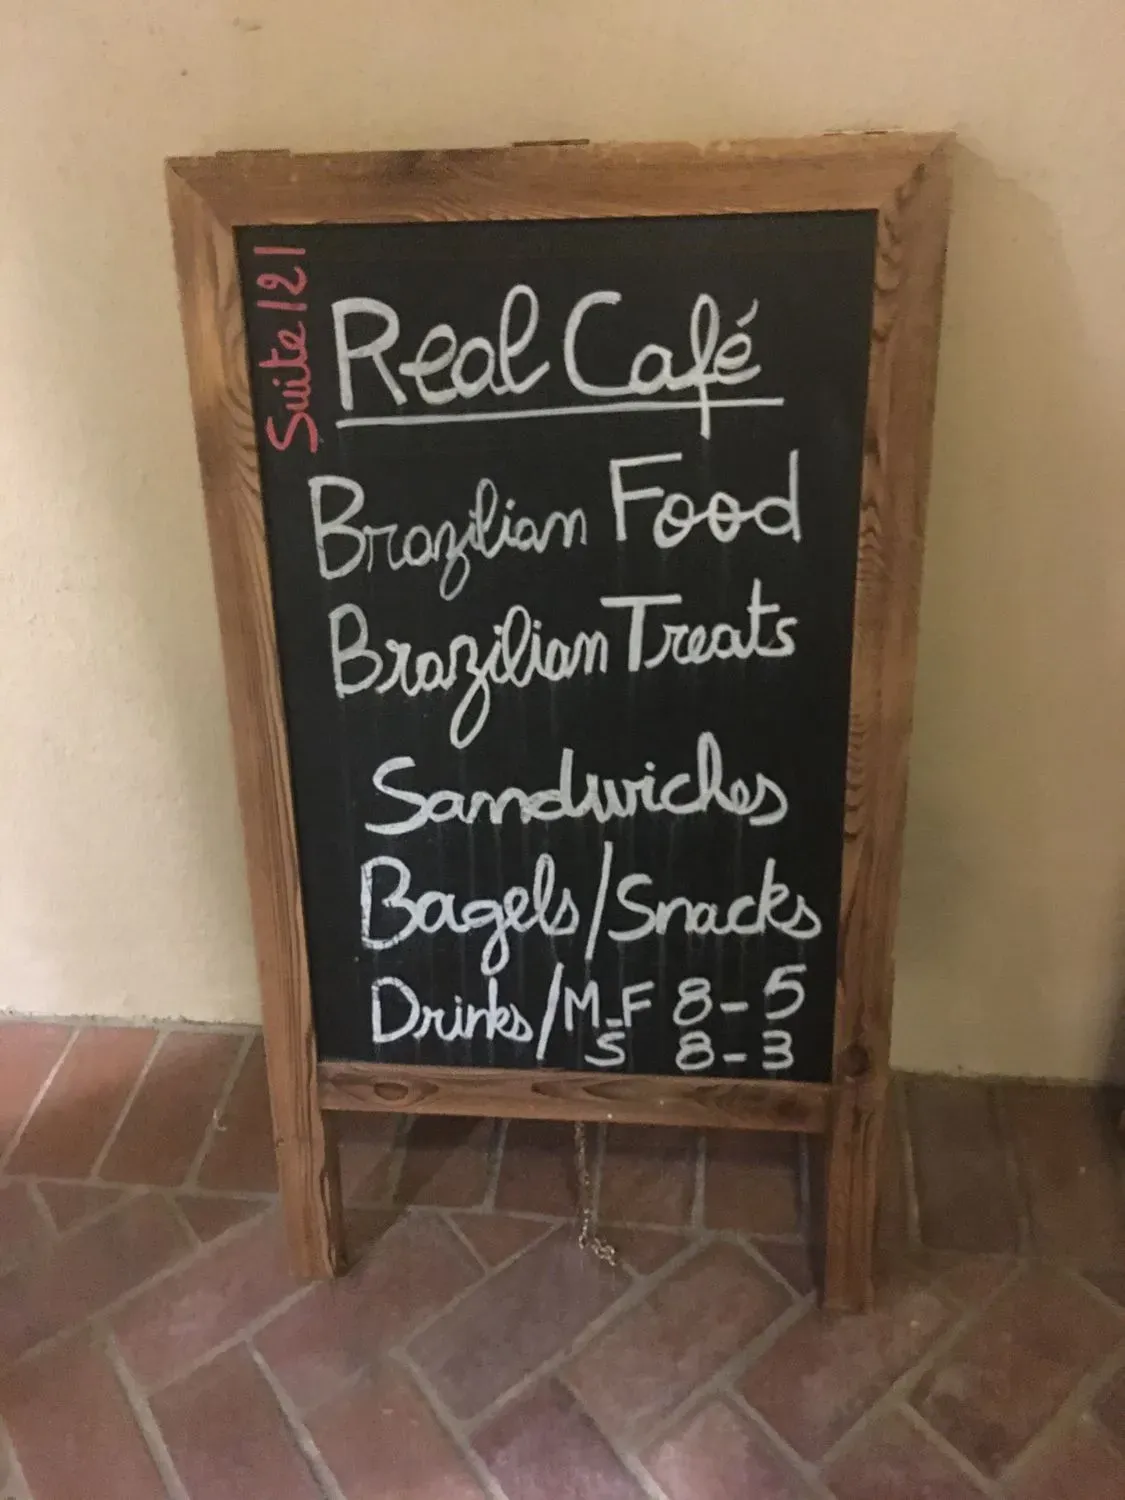 Suite 121
Real Café
Brazilian Food
Brazilian Treats
Sandwiches
Bagels/Snacks
Drinks/M-F 8-5
S 8-3